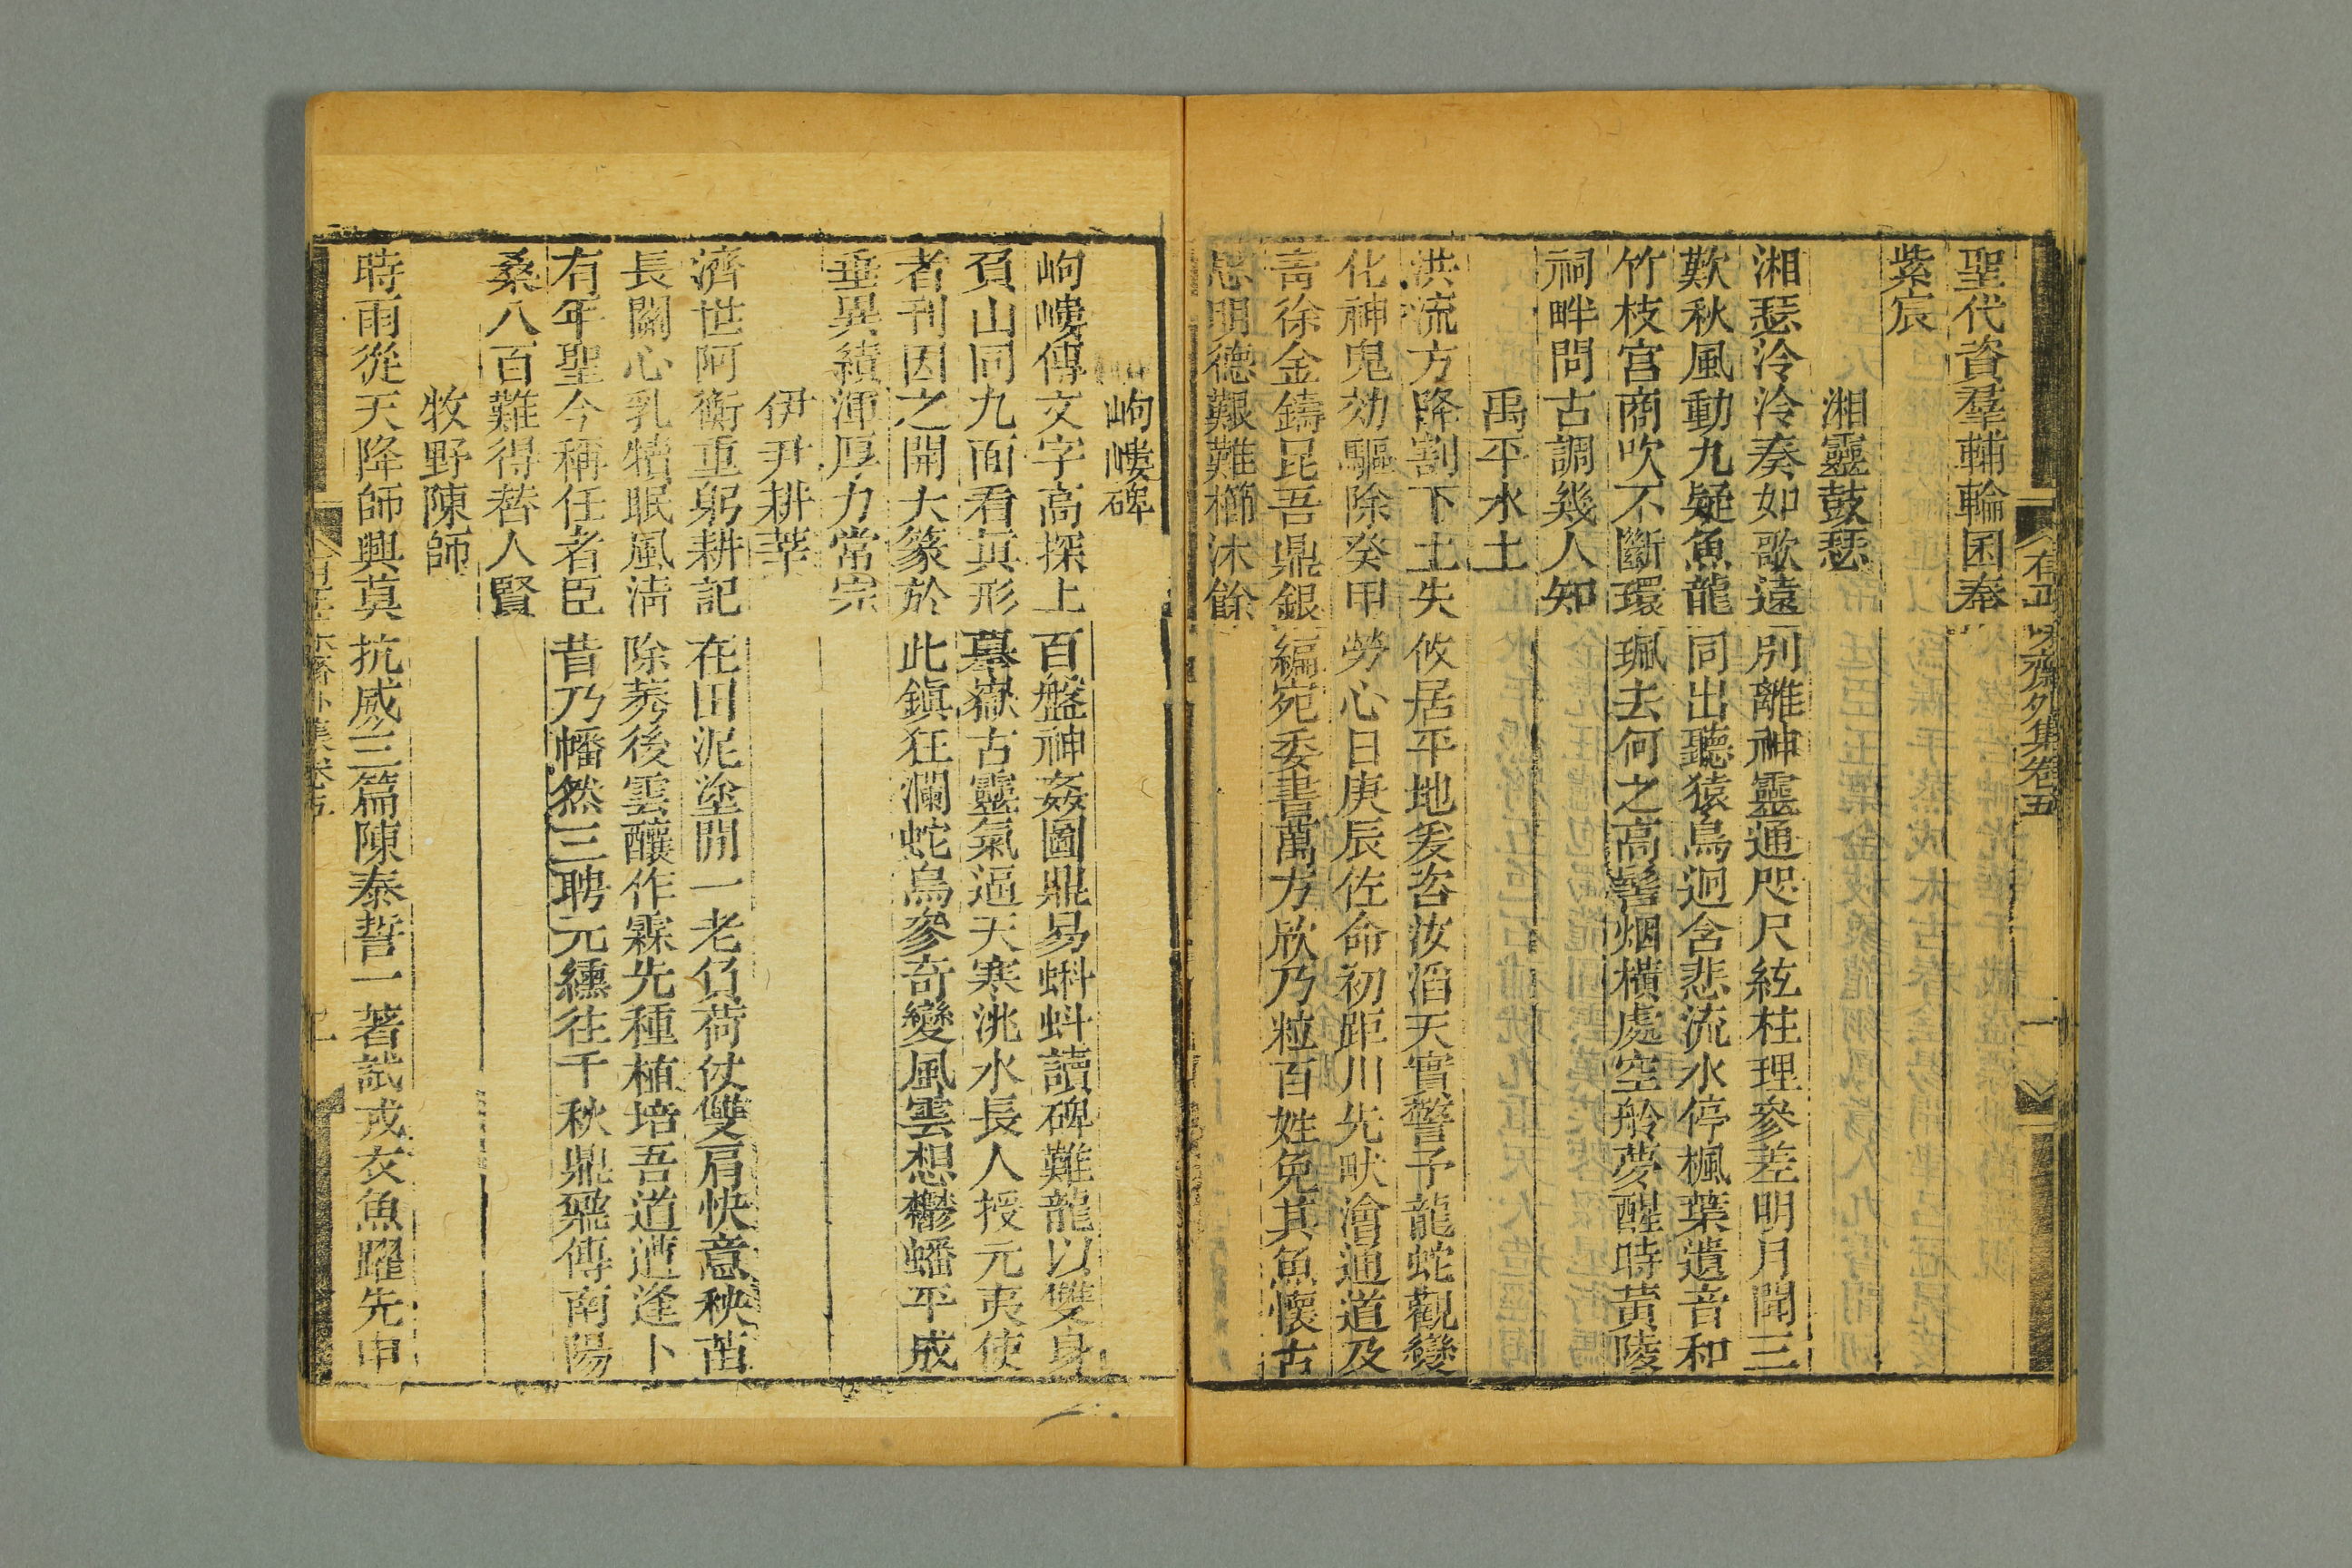 聖代資羣輔輪囷奉
紫宸
湘靈鼓瑟
湘瑟泠泠奏如歌遠別離神靈通咫尺絃柱理參差明月聞三
歎秋風動九疑魚龍同出聽猿鳥迥含悲流水停楓葉遺音和
竹枝宮商吹不斷環珮去何之高髻烟橫處空舲夢醒時黃陵
祠畔問古調幾人知
禹平水土
洪流方降割下土失攸居平地爰咨汝滔天實警予龍蛇觀變
化神鬼効驅除癸甲勞心日庚辰佐命初距川先畎澮通道及
青徐金鑄昆吾鼎銀編宛委書萬方欣乃粒百姓免其魚懷古
思明德艱難櫛沐餘
有正味齋外集卷五
一
岣嶁碑
岣嶁傳文字高探上百盤神姦圖鼎易蝌蚪讀碑難龍以雙身
負山同九面看眞形摹嶽古靈氣逼天寒洮水長人授元夷使
者刊因之開大篆於此鎭狂瀾蛇鳥參奇變風雲想鬱蟠平成
垂異績渾厚力常完
伊尹耕莘
濟世阿衡重躬耕記在田泥塗閒一老負荷仗雙肩快意秧苗
長關心乳犢眠風淸除莠後雲釀作霖先種植培吾道遭逢卜
有年聖今稱任者臣昔乃幡然三聘元纁往千秋鼎飛傳南陽
桑八百難得替人賢
牧野陳師
時雨從天降師興莫抗威三篇陳泰誓一著試戎衣魚躍先申